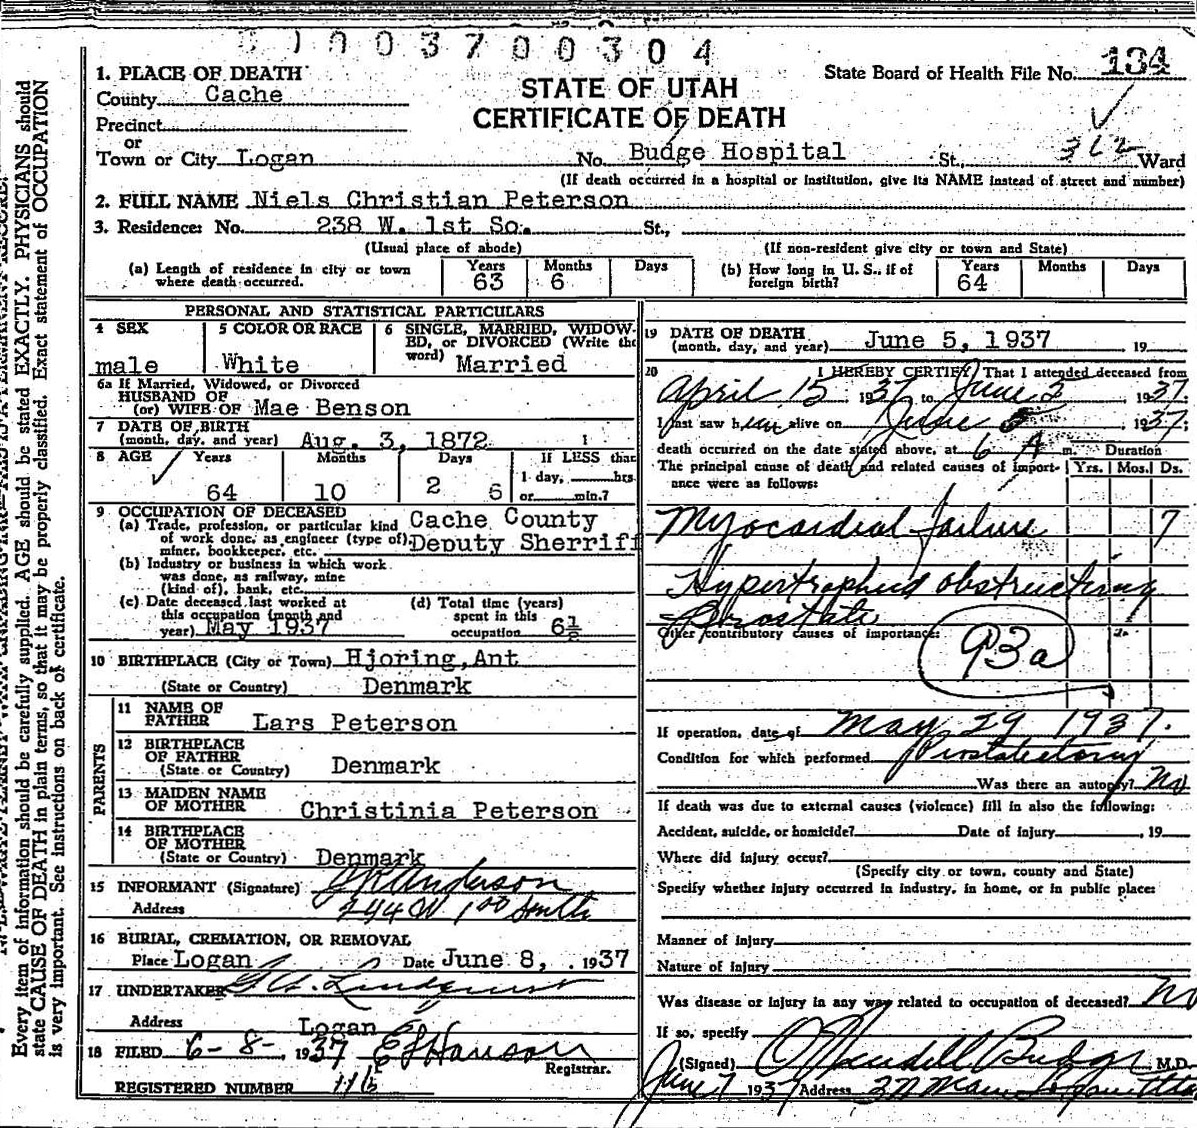 3 7 0 0 3 0 4
1. PLACE OF DEATH
STATE OF UTAH
CERTIFICATE OF DEATH
State Board of Health File No. 134
County Cache
Precinct
or
Town or City Logan No. Budge Hospital St., 362 Ward
(If death occurred in a hospital or institution, give its NAME instead of street and number)
2. FULL NAME Niels Christian Peterson
3. Residence: No. 238 W. 1st So. St.,
(Usual place of abode) (If non-resident give city or town and State)
(a) Length of residence in city or town where death occurred. Years 63 Months 6 Days
(b) How long in U. S., if of foreign birth? Years 64 Months Days
PERSONAL AND STATISTICAL PARTICULARS
4 SEX male
5 COLOR OR RACE White
6 SINGLE, MARRIED, WIDOWED, or DIVORCED (Write the word) Married
6a If Married, Widowed, or Divorced
HUSBAND OF
(or) WIFE OF Mae Benson
7 DATE OF BIRTH
(month, day, and year) Aug. 3, 1872
8 AGE Years Months Days If LESS than
64 10 2 6 1 day, hrs.
or min.?
9 OCCUPATION OF DECEASED
(a) Trade, profession, or particular kind of work done, as engineer (type of), miner, bookkeeper, etc. Cache County Deputy Sherriff
(b) Industry or business in which work was done, as railway, mine (kind of), bank, etc.
(c) Date deceased last worked at this occupation (month and year) May 1937
(d) Total time (years) spent in this occupation 6½
10 BIRTHPLACE (City or Town) Hjoring, Ant
(State or Country) Denmark
PARENTS
11 NAME OF FATHER Lars Peterson
12 BIRTHPLACE OF FATHER
(State or Country) Denmark
13 MAIDEN NAME OF MOTHER Christinia Peterson
14 BIRTHPLACE OF MOTHER
(State or Country) Denmark
15 INFORMANT (Signature) Anderson
Address 244 W 1st South
16 BURIAL, CREMATION, OR REMOVAL
Place Logan Date June 8, 1937
17 UNDERTAKER Lindquist
Address Logan
18 FILED 6-8-, 1937 Hanson
Registrar.
REGISTERED NUMBER 116
19 DATE OF DEATH
(month, day, and year) June 5, 1937 19
20 I HEREBY CERTIFY, That I attended deceased from
April 15 1937 to June 5 1937.
I last saw him alive on June 5, 1937;
death occurred on the date stated above, at 6 A m. Duration
The principal cause of death and related causes of importance were as follows: Yrs. Mos. Ds.
Myocardial failure 7
Hypertrophied obstructing
Prostate
Other contributory causes of importance:
93a
If operation, date of May 29 1937.
Condition for which performed Prostatectomy
Was there an autopsy? No
If death was due to external causes (violence) fill in also the following:
Accident, suicide, or homicide? Date of injury , 19
Where did injury occur?
(Specify city or town, county and State)
Specify whether injury occurred in industry, in home, or in public place:
Manner of injury
Nature of injury
Was disease or injury in any way related to occupation of deceased? No
If so, specify
(Signed) O Wendell Budge M.D.
June 7 1937 Address Logan Utah
Every item of information should be carefully supplied. AGE should be stated EXACTLY. PHYSICIANS should
state CAUSE OF DEATH in plain terms, so that it may be properly classified. Exact statement of OCCUPATION
is very important. See instructions on back of certificate.